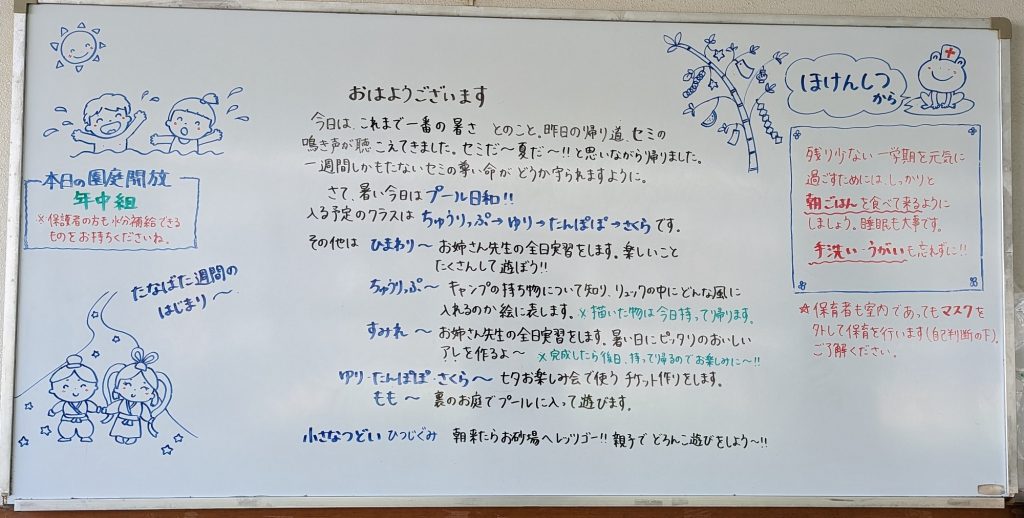 おはようございます
今日は、これまで一番の暑さ とのこと。昨日の帰り道、セミの
鳴き声が聴こえてきました。セミだ〜夏だ〜!!と思いながら帰りました。
一週間しかもたないセミの尊い命が どうか守られますように。
さて、暑い今日はプール日和!!
入る予定のクラスは ちゅうりっぷ→ゆり→たんぽぽ→さくらです。
その他は ひまわり〜 お姉さん先生の全日実習をします。楽しいこと
たくさんして遊ぼう!!
ちゅうりっぷ〜 キャンプの持ち物について知り、リュックの中にどんな風に
入れるのか絵に表します。×描いた物は今日持って帰ります。
すみれ〜 お姉さん先生の全日実習をします。暑い日にピッタリのおいしい
アレを作るよ〜 ×完成したら後日、持って帰るのでお楽しみに〜!!
ゆり・たんぽぽ・さくら〜 七夕お楽しみ会で使う チケット作りをします。
もも〜 裏のお庭でプールに入って遊びます。
小さなつどい ひつじぐみ 朝来たらお砂場へレッツゴー!! 親子で どろんこ遊びをしよう〜!!
本日の園庭開放
年中組
※保護者の方も水分補給できる
ものをお持ちくださいね。
たなばた週間の
はじまり〜
ほけんしつ
から
残り少ない一学期を元気に
過ごすためには、しっかりと
朝ごはんを食べて来るように
しましょう。睡眠も大事です。
手洗い・うがいも忘れずに!!
☆保育者も室内であってもマスクを
外して保育を行います(自己判断の下)。
ご了解ください。